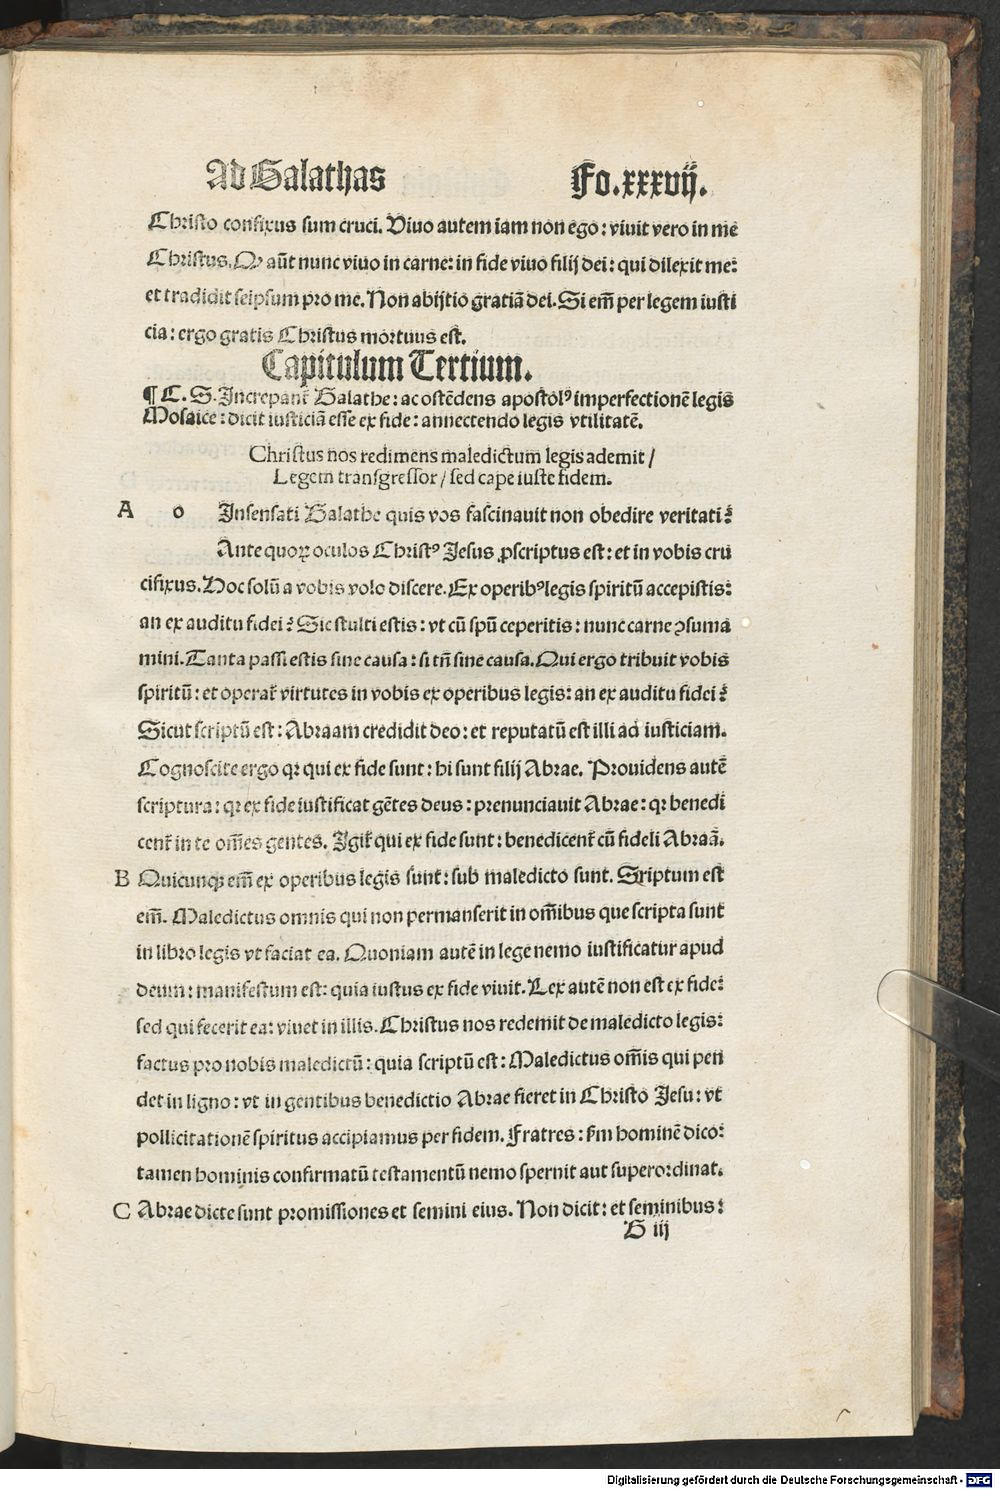 Ad Galathas Fo.xxxvij.
Christo confixus sum cruci. Viuo autem iam non ego: viuit vero in me
Christus. Qꝙ aūt nunc viuo in carne: in fide viuo filij dei: qui dilexit me:
et tradidit seipsum pro me. Non abijtio gratiā dei. Si em̄ per legem iusti
cia: ergo gratis Christus mortuus est.
Capitulum Tertium.
¶ C. S. Increpant᷑ Galathe: ac ostēdens apostolꝰ imperfectionē legis
Mosaice: dicit iusticiā esse ex fide: annectendo legis vtilitatē.
Christus nos redimens maledictum legis ademit /
Legem transgressor / sed cape iuste fidem.
A o Insensati Galathe quis vos fascinauit non obedire veritati?
Ante quoꝝ oculos Christꝰ Jesus ꝓscriptus est: et in vobis cru
cifixus. Hoc solū a vobis volo discere. Ex operibꝰ legis spiritū accepistis:
an ex auditu fidei? Sic stulti estis: vt cū spū ceperitis: nunc carne ꝯsuma
mini. Tanta passi estis sine causa: si tn̄ sine causa. Qui ergo tribuit vobis
spiritū: et operat᷑ virtutes in vobis ex operibus legis: an ex auditu fidei?
Sicut scriptū est: Abraam credidit deo: et reputatū est illi ad iusticiam.
Cognoscite ergo qꝛ qui ex fide sunt: hi sunt filij Abrae. Prouidens autē
scriptura: qꝛ ex fide iustificat gētes deus: prenunciauit Abrae: qꝛ benedi
cent᷑ in te om̄es gentes. Igit᷑ qui ex fide sunt: benedicent᷑ cū fideli Abraā.
B Quicunqꝫ em̄ ex operibus legis sunt: sub maledicto sunt. Scriptum est
em̄. Maledictus omnis qui non permanserit in om̄ibus que scripta sunt
in libro legis vt faciat ea. Quoniam autē in lege nemo iustificatur apud
deum: manifestum est: quia iustus ex fide viuit. Lex autē non est ex fide:
sed qui fecerit ea: viuet in illis. Christus nos redemit de maledicto legis:
factus pro nobis maledictū: quia scriptū est: Maledictus om̄is qui pen
det in ligno: vt in gentibus benedictio Abrae fieret in Christo Jesu: vt
pollicitationē spiritus accipiamus per fidem. Fratres: ẜm hominē dico:
tamen hominis confirmatū testamentū nemo spernit aut superordinat.
C Abrae dicte sunt promissiones et semini eius. Non dicit: et seminibus:
G iij
Digitalisierung gefördert durch die Deutsche Forschungsgemeinschaft - DFG